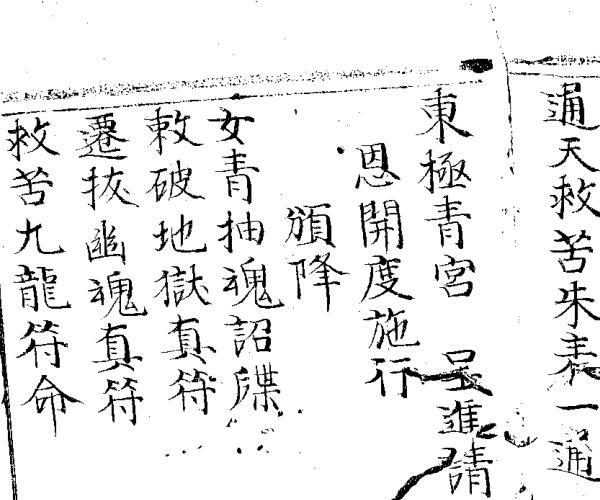 通天救苦朱表一通
東極青宮　呈進請
恩開度施行
頒降
女青抽魂詔牒
敕破地獄真符
遷拔幽魂真符
救苦九龍符命